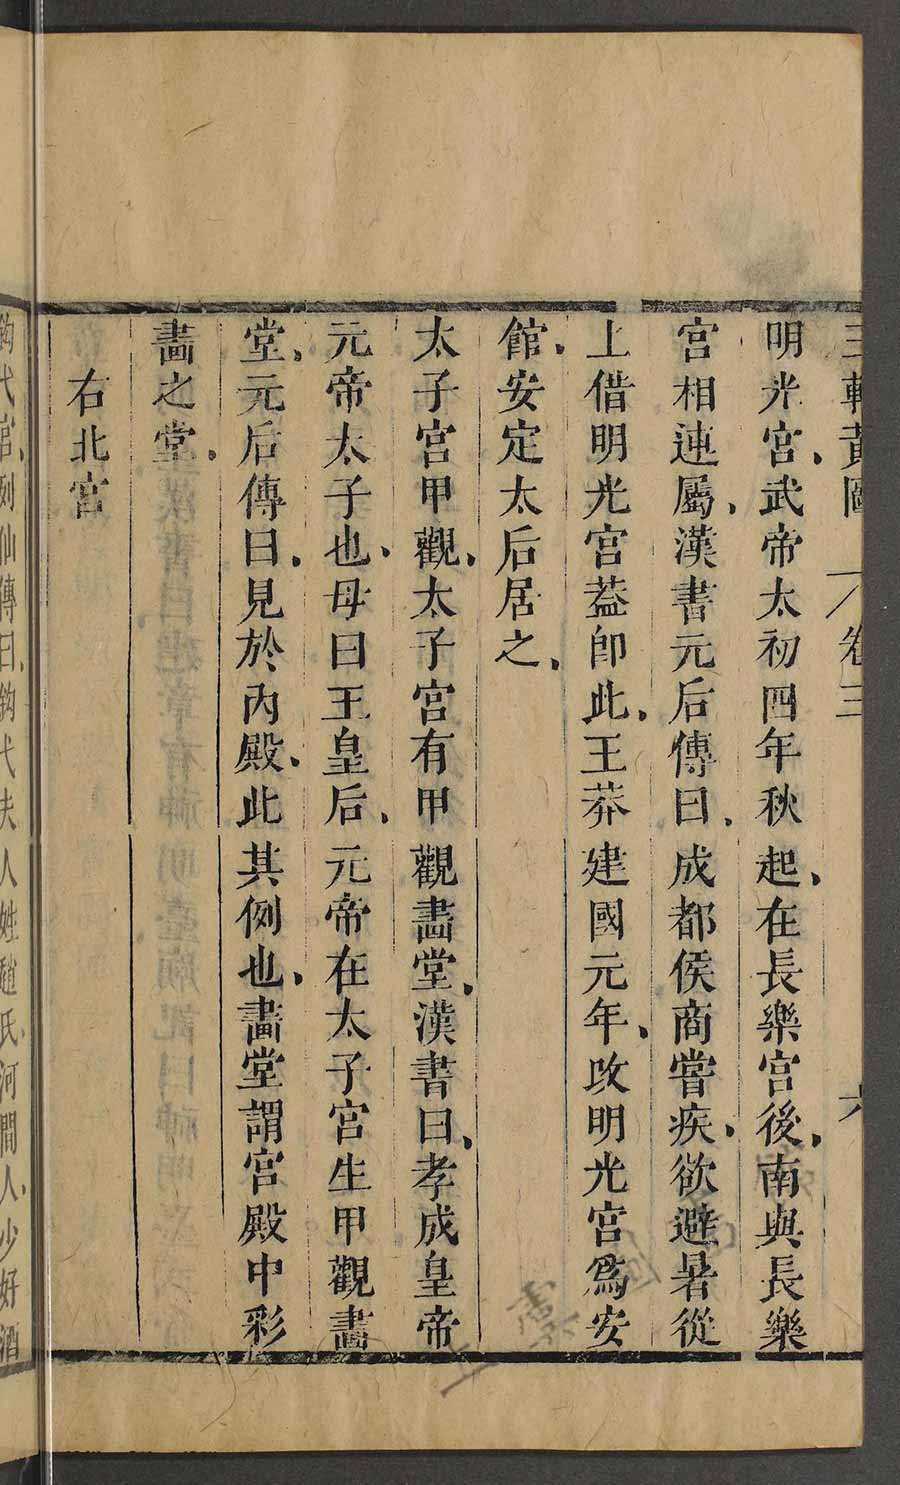 三輔黃圖 卷三 六
明光宮、武帝太初四年秋起、在長樂宮後、南與長樂
宮相連屬、漢書元后傳曰、成都侯商嘗疾、欲避暑從
上借明光宮蓋卽此、王莽建國元年、改明光宮爲安
館、安定太后居之、
太子宮甲觀、太子宮有甲觀畵堂、漢書曰、孝成皇帝
元帝太子也、母曰王皇后、元帝在太子宮生甲觀畵
堂、元后傳曰、見於丙殿、此其例也、畵堂謂宮殿中彩
畵之堂、
右北宮
鈎弋宮、列仙傳曰、鈎弋夫人姓趙氏、河間人、少好酒